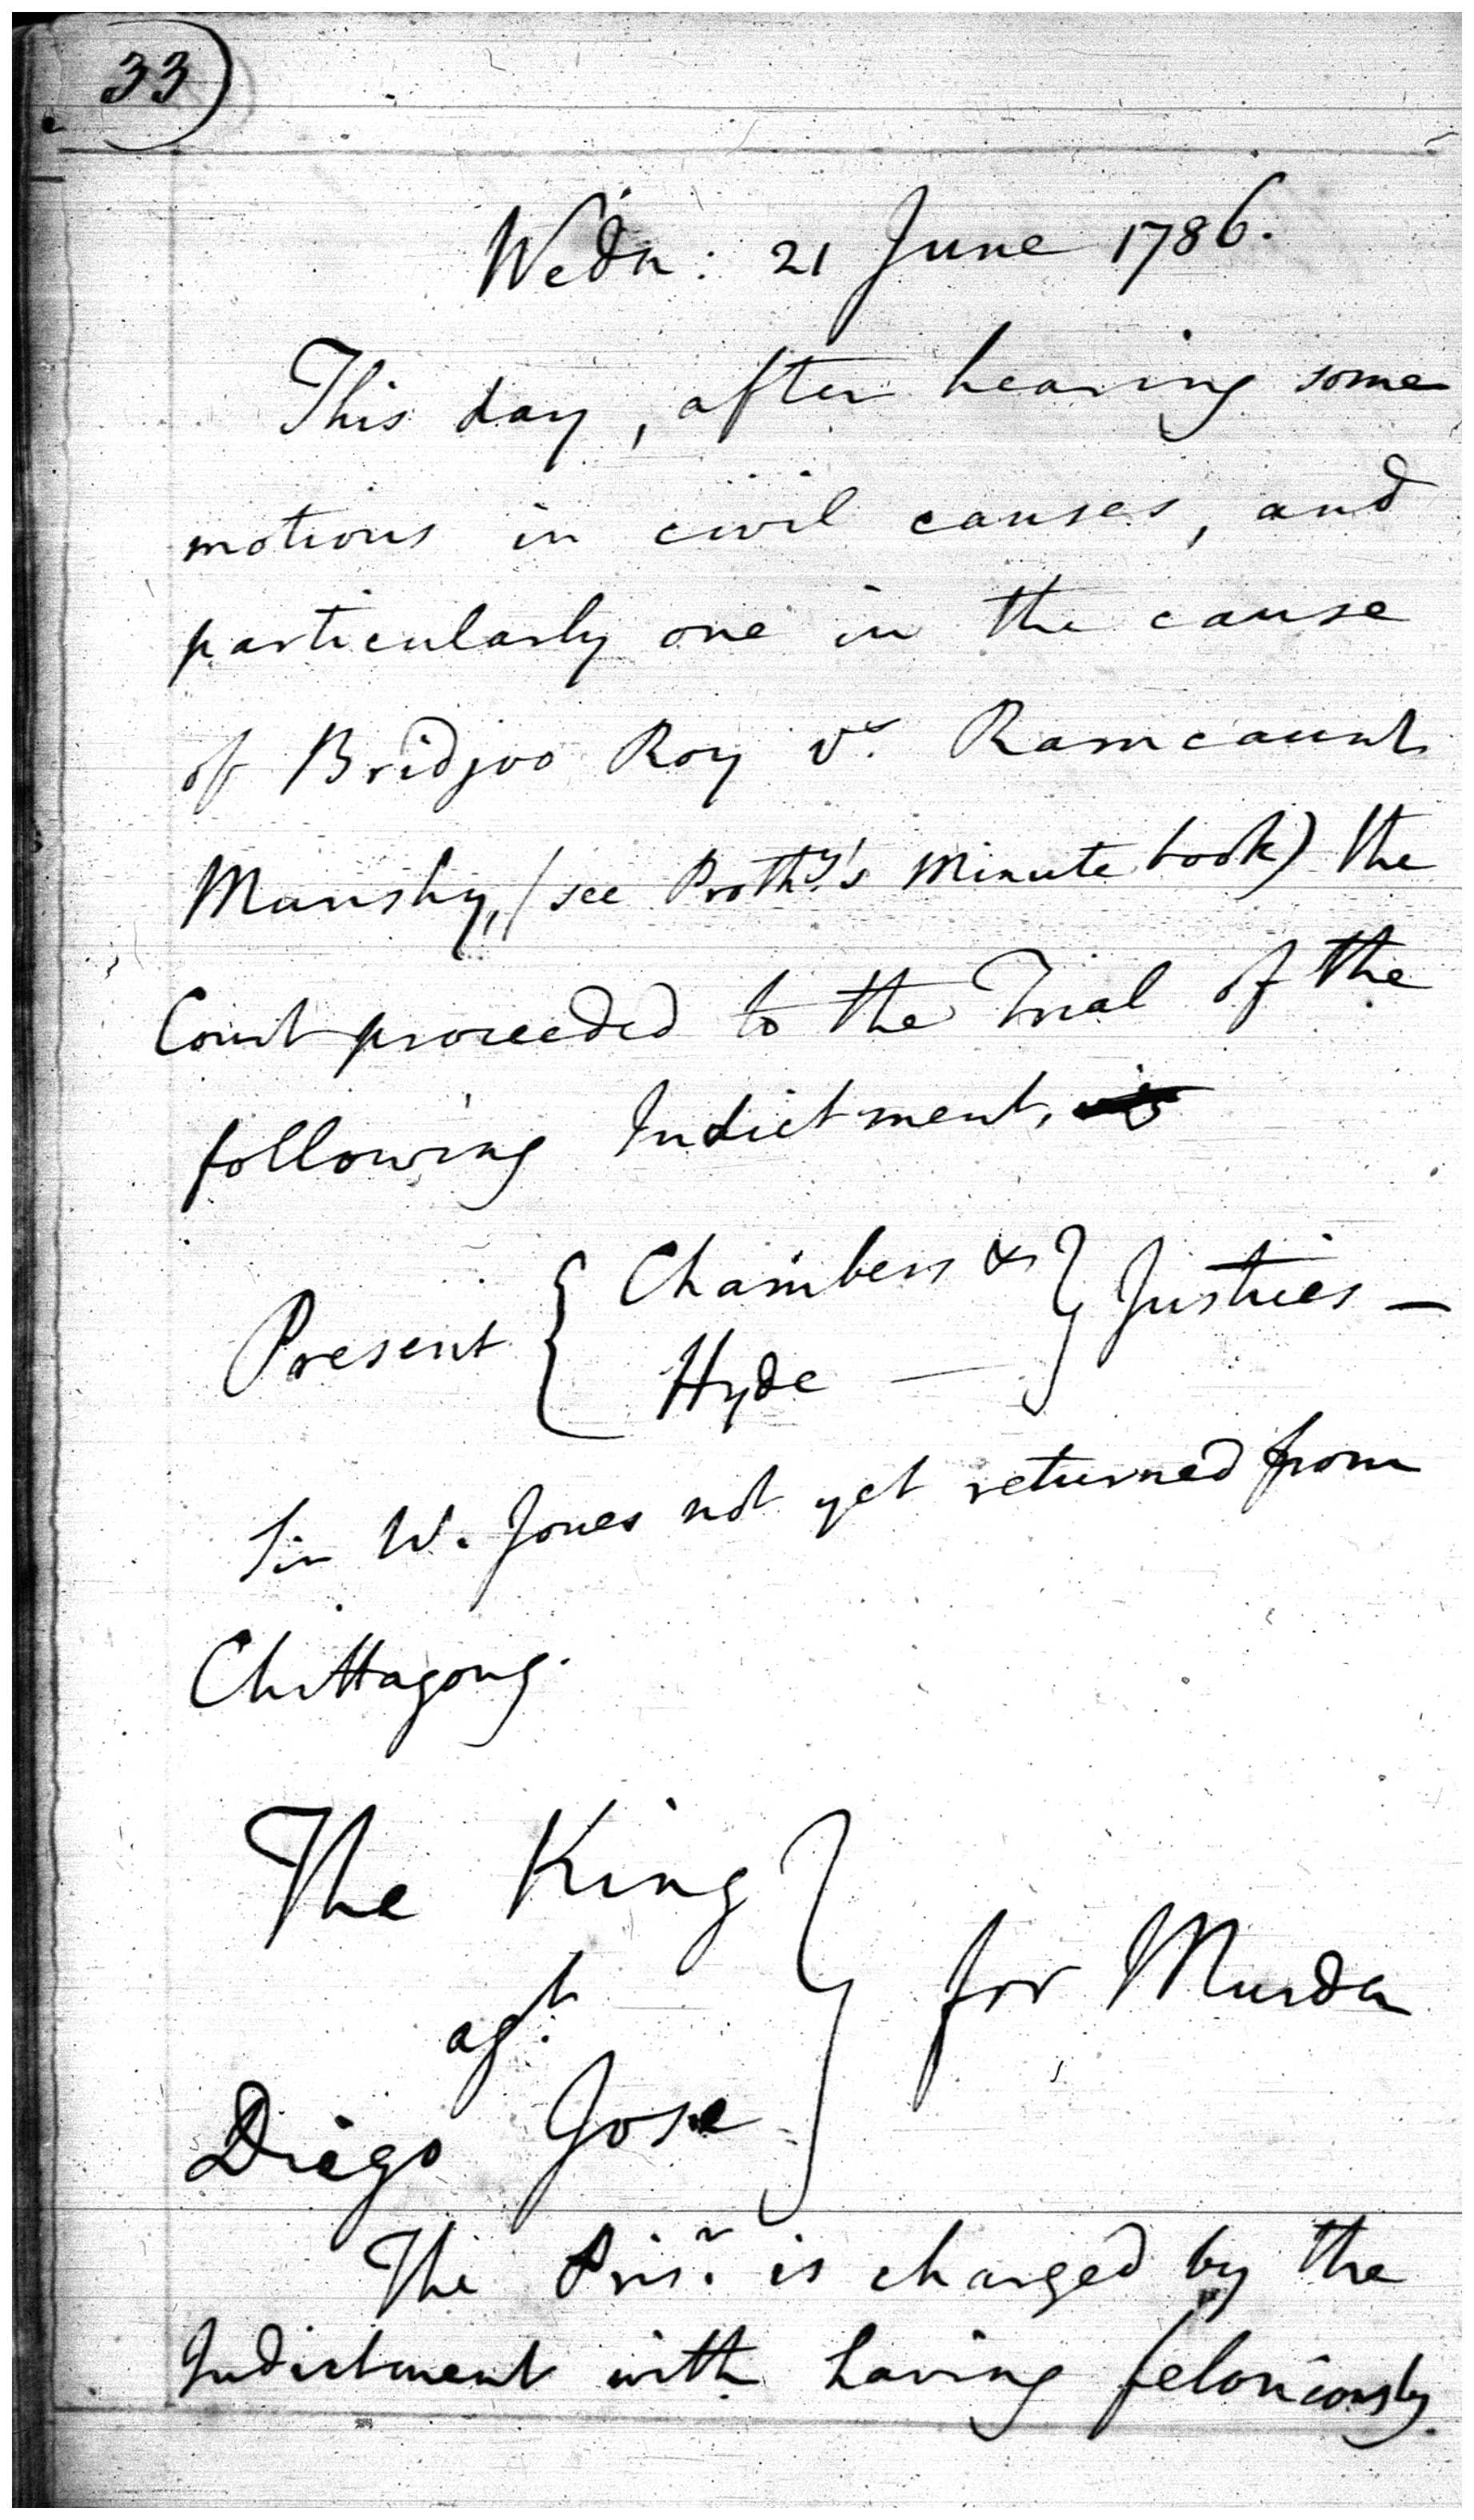 33
Wedn: 21 June 1786.
This day, after hearing some
motions in civil causes, and
particularly one in the cause
of Bridjoo Roy vs. Ramcaunt
Munshy, (see Prothy's Minute book) the
Court proceeded to the Trial of the
following Indictment,
Present { Chambers & } Justices —
Hyde —
Sir W. Jones not yet returned from
Chittagong.
The King
agt. } for Murder
Diego Jose
The Prisr. is charged by the
Indictment with having feloniously